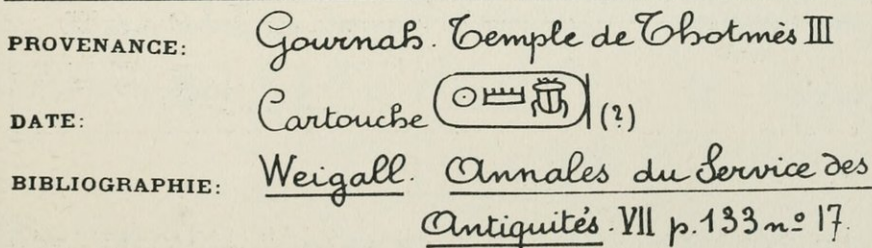 PROVENANCE: Gournah. Temple de Thotmès III
DATE: Cartouche 𓇳𓏠𓆣 (?)
BIBLIOGRAPHIE: Weigall. Annales du Service des
Antiquités. VII p.133 nº 17.